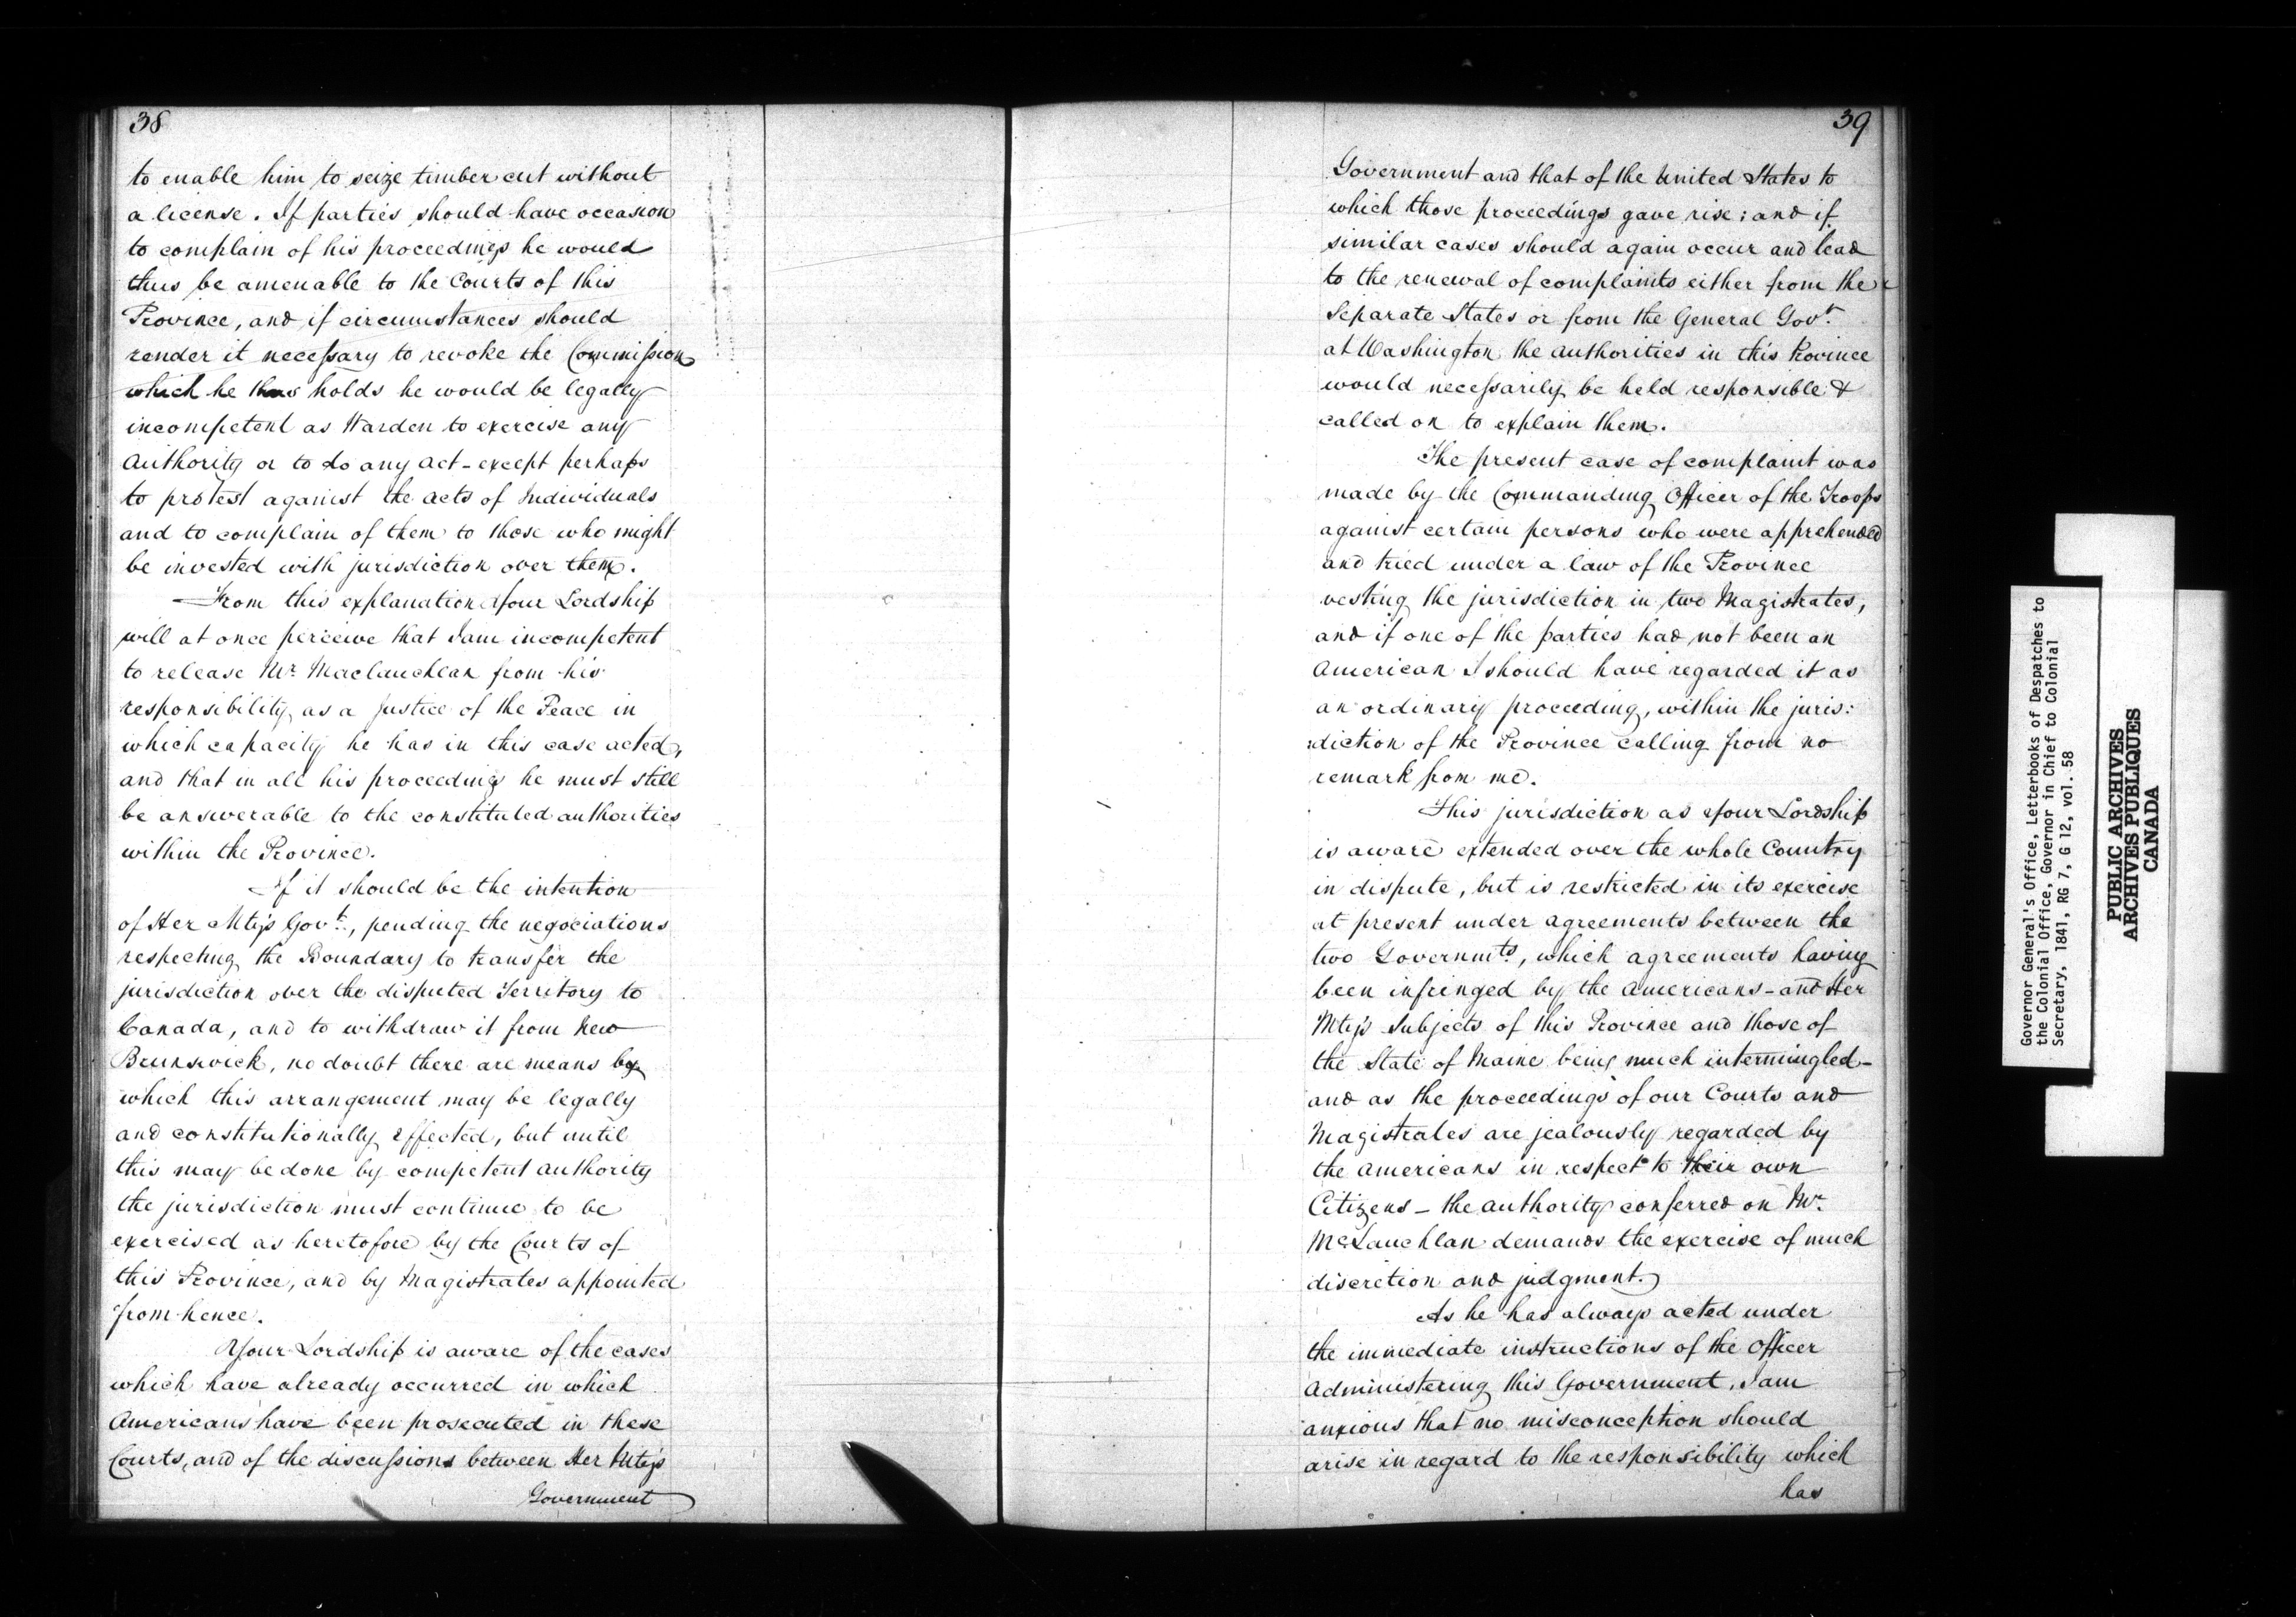 38
to enable him to seize timber cut without
a license. If parties should have occasion
to complain of his proceedings he would
thus be amenable to the Courts of this
Province, and if circumstances should
render it necessary to revoke the Commission
which he thus holds he would be legally
incompetent as Warden to exercise any
Authority or to do any act - except perhaps
to protest against the acts of Individuals
and to complain of them to those who might
be invested with jurisdiction over them.
From this explanation Your Lordship
will at once perceive that I am incompetent
to release Mr. Maclauchlan from his
responsibility as a Justice of the Peace in
which capacity he has in this case acted,
and that in all his proceedings he must still
be answerable to the constituted authorities
within the Province.
If it should be the intention
of Her Mty's Govt., pending the negociations
respecting the Boundary to transfer the
jurisdiction over the disputed Territory to
Canada, and to withdraw it from New
Brunswick, no doubt there are means by
which this arrangement may be legally
and constitutionally effected, but until
this may be done by competent authority
the jurisdiction must continue to be
exercised as heretofore by the Courts of
this Province, and by Magistrates appointed
from hence.
Your Lordship is aware of the cases
which have already occurred in which
Americans have been prosecuted in these
Courts, and of the discussions between Her Mty's
Government
39
Government and that of the United States to
which those proceedings gave rise; and if
similar cases should again occur and lead
to the renewal of complaints either from the
Separate States or from the General Govt.
at Washington the authorities in this Province
would necessarily be held responsible &
called on to explain them.
The present case of complaint was
made by the Commanding Officer of the Troops
against certain persons who were apprehended
and tried under a law of the Province
vesting the jurisdiction in two Magistrates,
and if one of the parties had not been an
American I should have regarded it as
an ordinary proceeding, within the juris:
:diction of the Province calling from no
remark from me.
This jurisdiction as Your Lordship
is aware extended over the whole Country
in dispute, but is restricted in its exercise
at present under agreements between the
two Governmts, which agreements having
been infringed by the Americans - and Her
Mty's Subjects of this Province and those of
the State of Maine being much intermingled -
and as the proceedings of our Courts and
Magistrates are jealously regarded by
the Americans in respect to their own
Citizens - the authority conferred on Mr.
McLauchlan demands the exercise of much
discretion and judgment.
As he has always acted under
the immediate instructions of the Officer
Administering this Government, I am
anxious that no misconception should
arise in regard to the responsibility which
has
Governor General's Office, Letterbooks of Despatches to
the Colonial Office, Governor in Chief to Colonial
Secretary, 1841, RG 7, G 12, vol. 58
PUBLIC ARCHIVES
ARCHIVES PUBLIQUES
CANADA